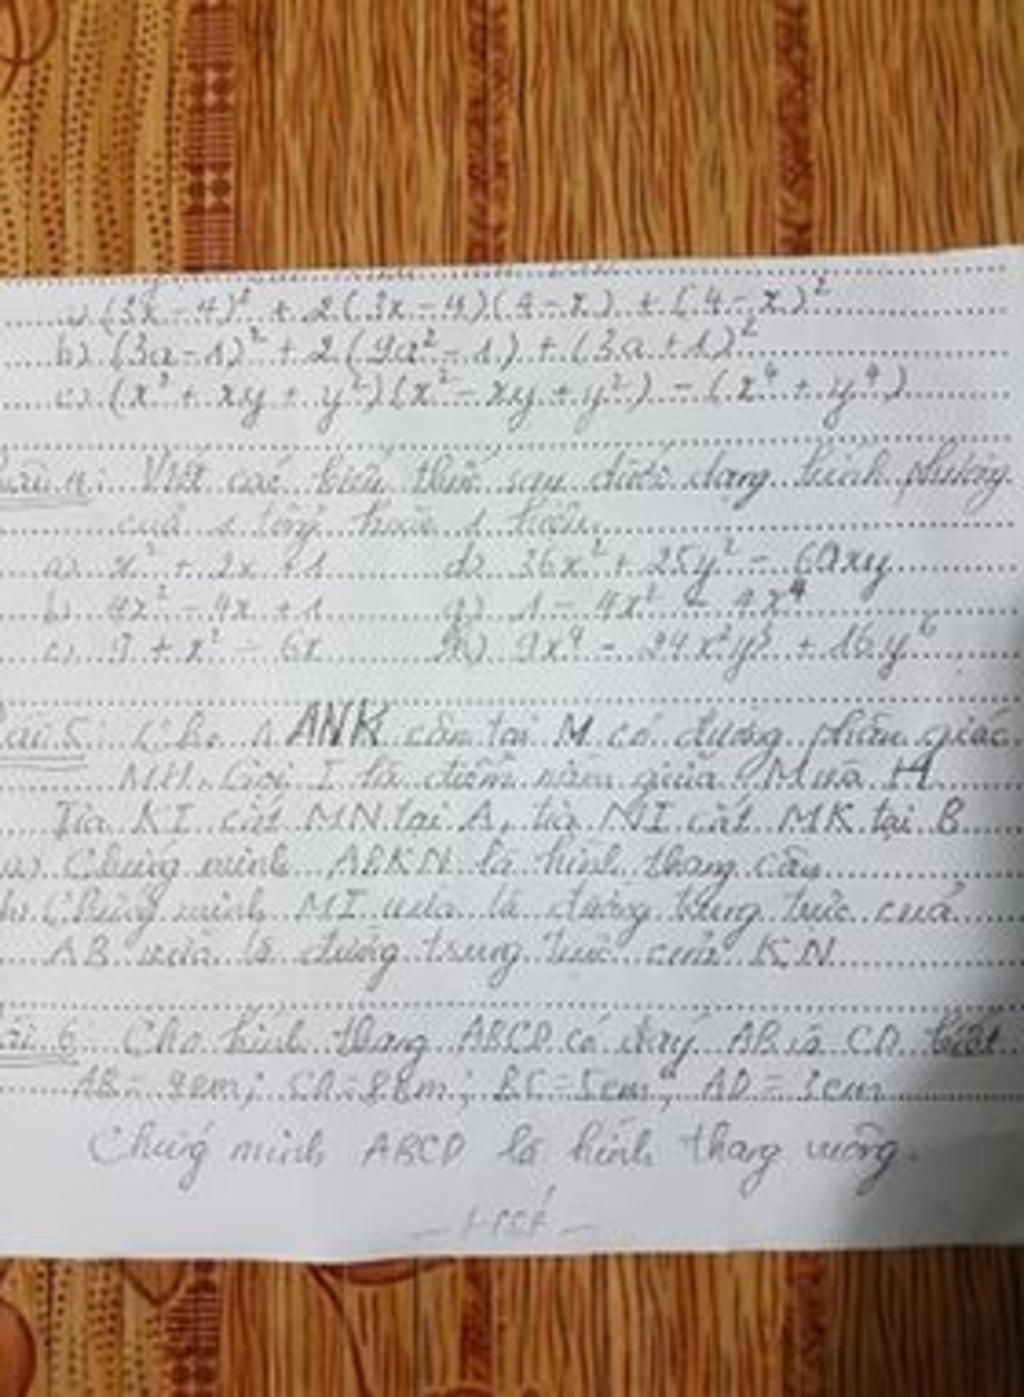 a) (3x - 4)² + 2(3x - 4)(4 - x) + (4 - x)²
b) (3a - 1)² + 2(9a² - 1) + (3a + 1)²
c) (x² + xy + y²)(x² - xy + y²) - (x⁴ + y⁴)
Câu 4: Viết các biểu thức sau dưới dạng bình phương
của 1 tổng hoặc 1 hiệu.
a) x² + 2x + 1 d) 36x² + 25y² - 60xy
b) 4x² - 4x + 1 g) 1 - 4x² - 4x⁴
c) 9 + x² - 6x h) 9x⁴ - 24x²y³ + 16y⁶
Câu 5: Cho Δ ANK cân tại M có đường phân giác
MH. Gọi I là điểm nằm giữa M và H
Tia KI cắt MN tại A, tia NI cắt MK tại B
a) Chứng minh ABKN là hình thang cân
b) Chứng minh MI vừa là đường trung trực của
AB vừa là đường trung trực của KN
Bài 6 Cho hình thang ABCD có đáy AB và CD biết
AB = 4cm; CD = 8cm; BC = 5cm; AD = 3cm
Chứng minh ABCD là hình thang vuông.
- Hết -